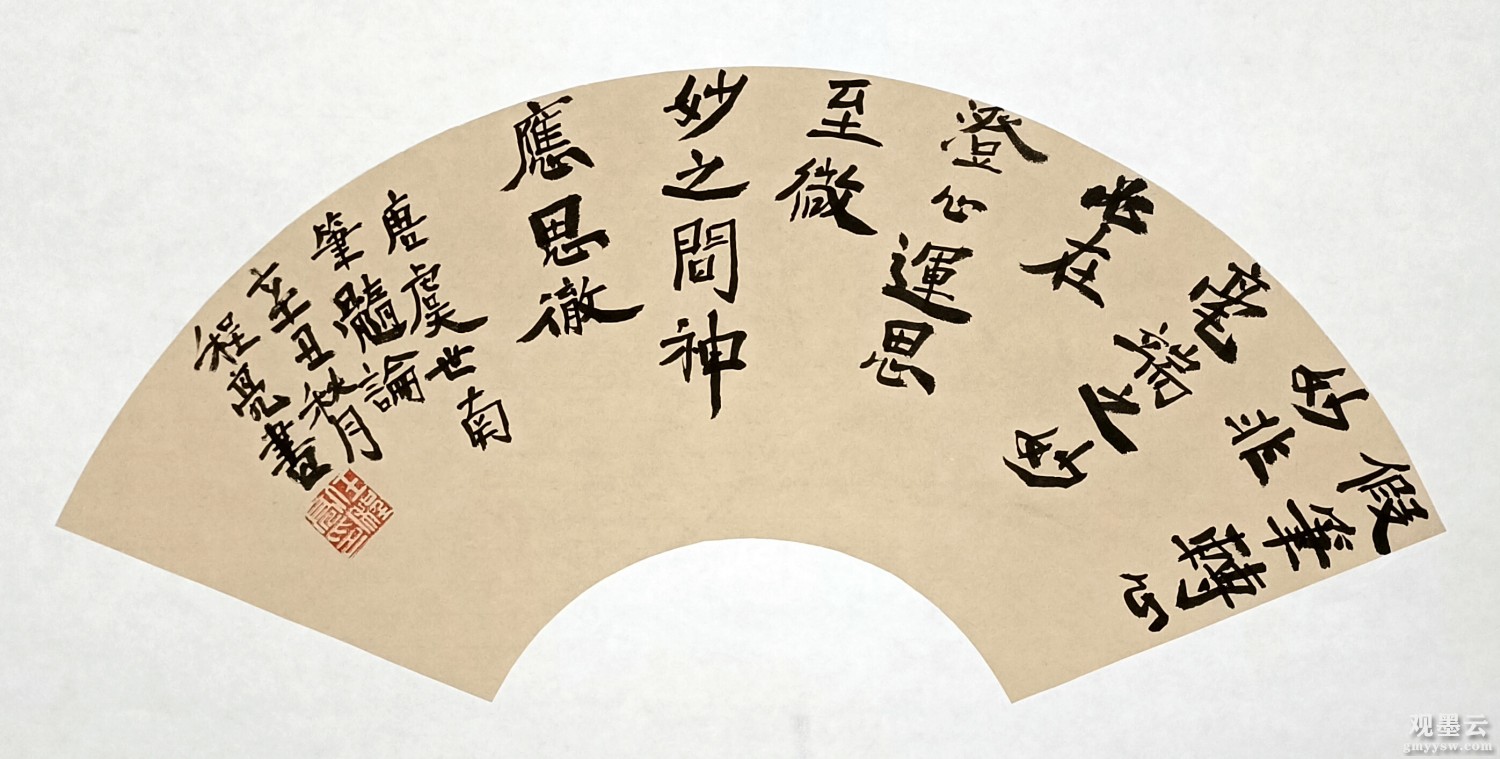 假筆轉心
妙非
毫端之妙
必在
澄心運思
至微
妙之間神
應思徹
唐虞世南
筆髓論
辛丑秋月
程亮書
观墨云
gmyysw.com